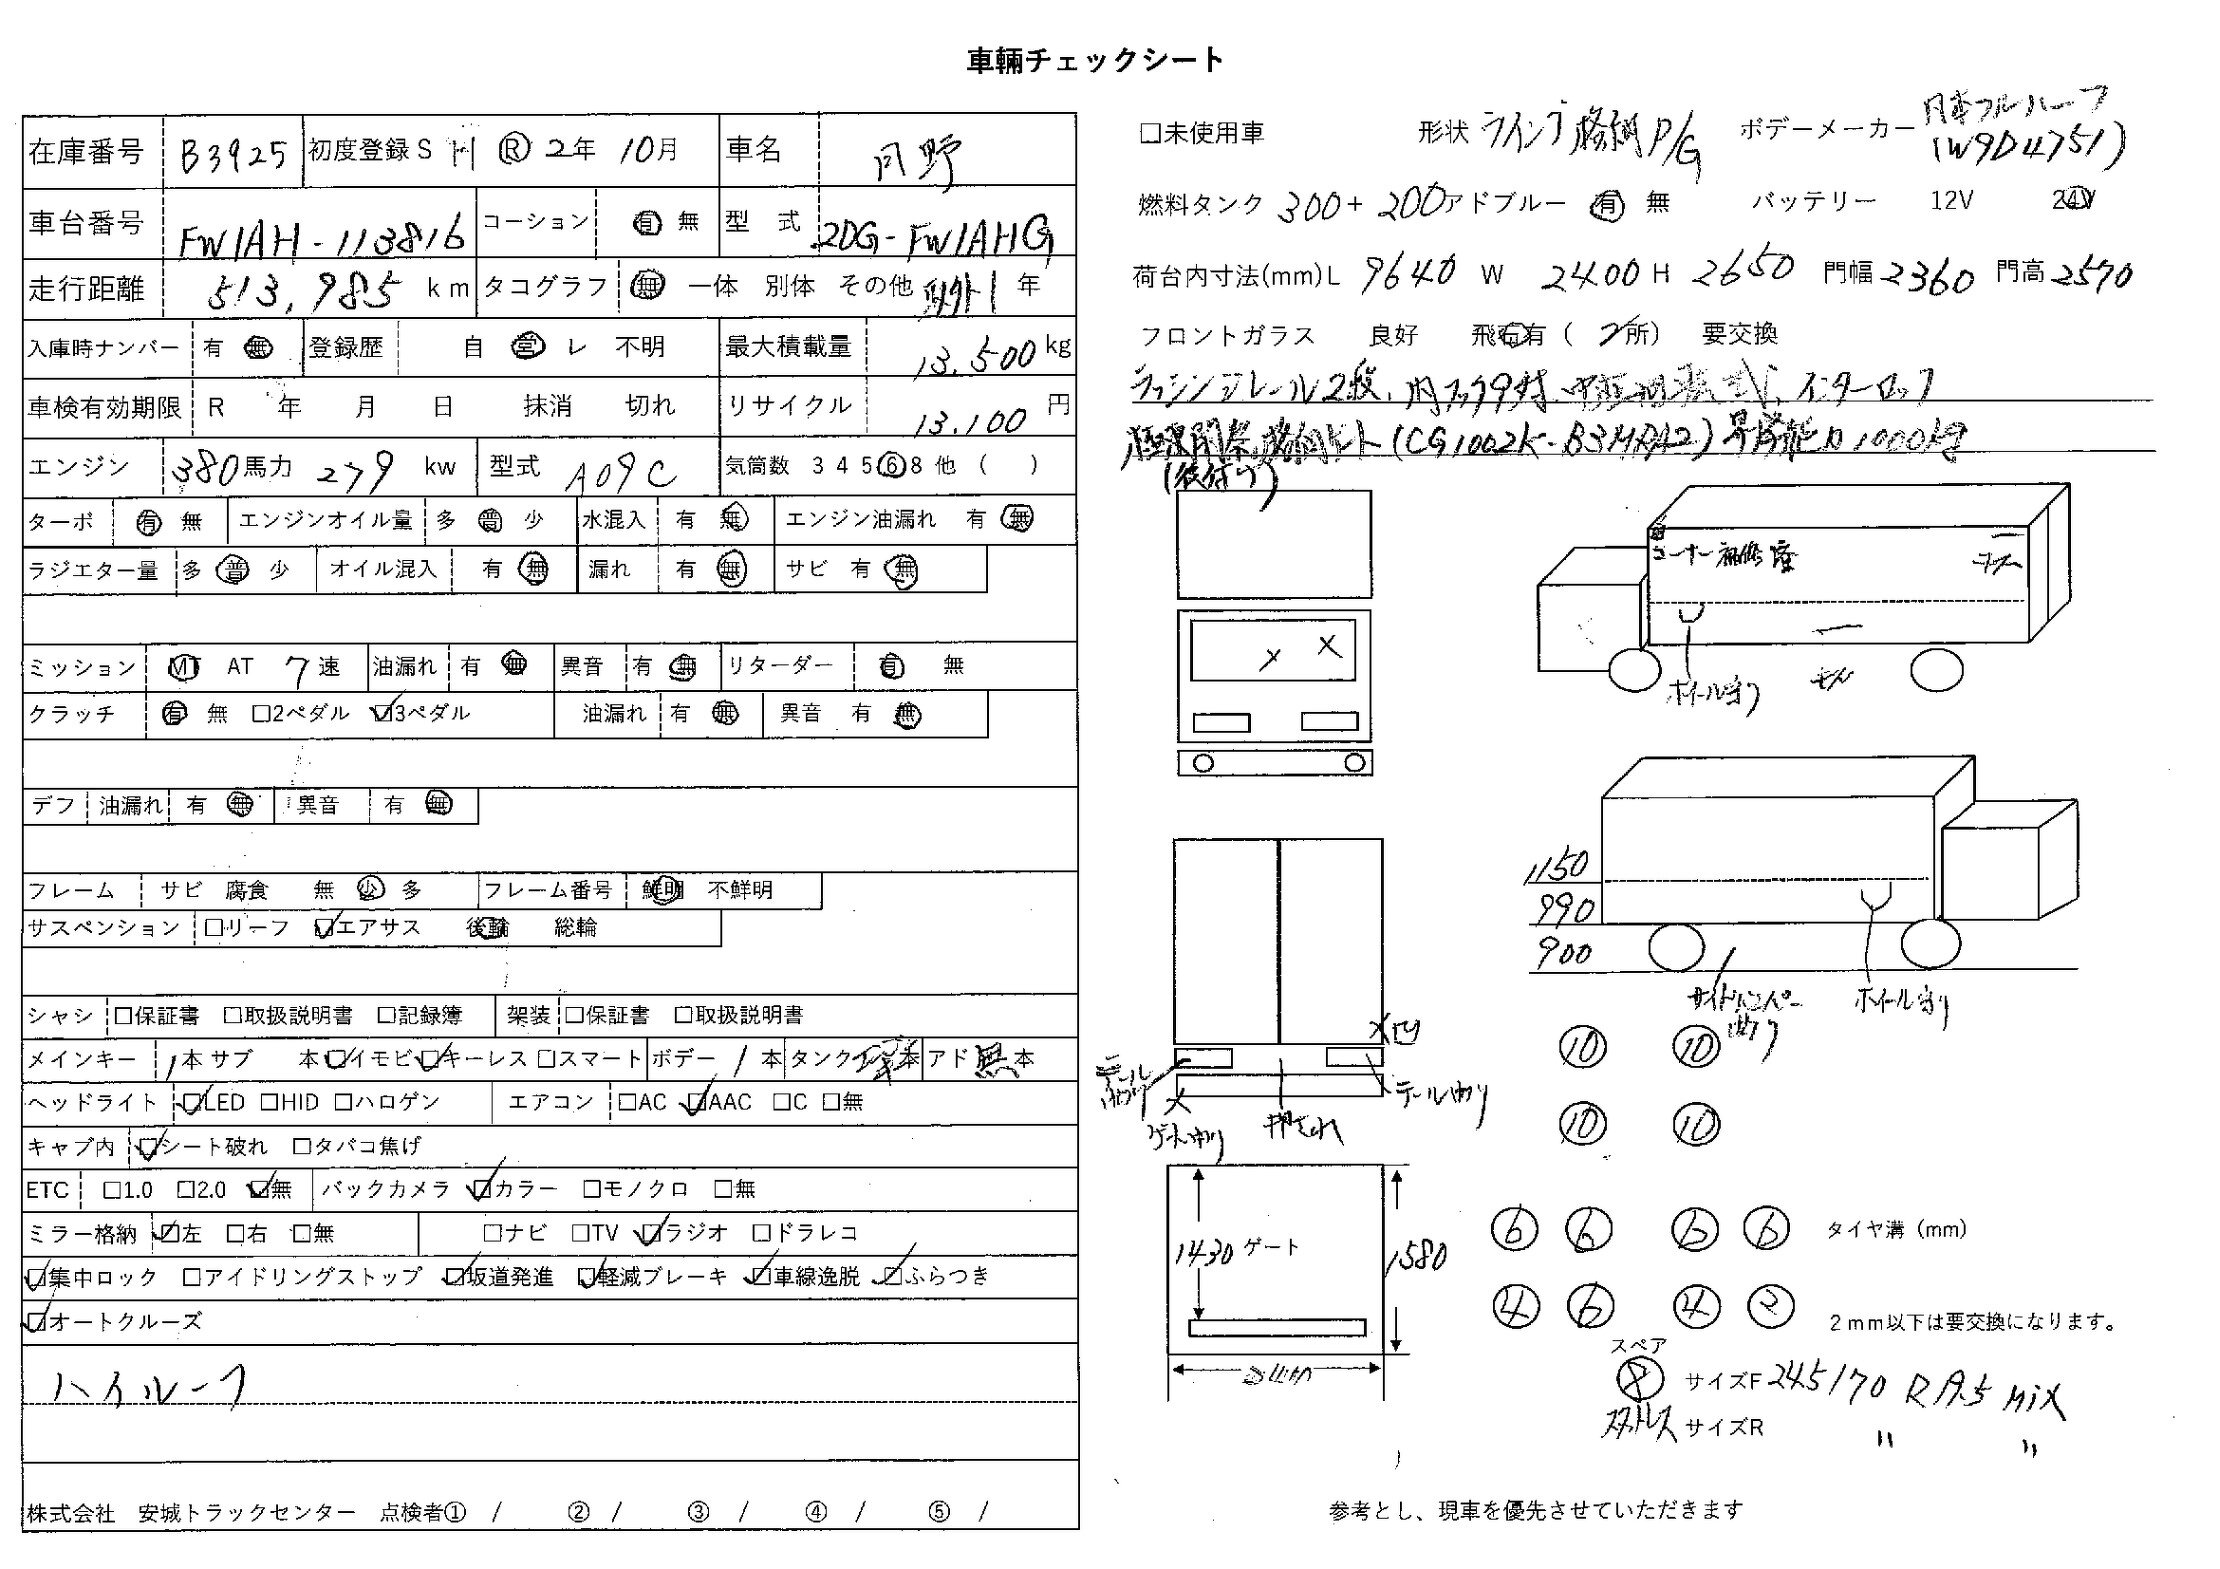 車輛チェックシート
在庫番号 B3925 初度登録 S H R 2年 10月 車名 日野
車台番号 FW1AH-113816 コーション 有 無 型 式 2DG-FW1AHG
走行距離 513,985 km タコグラフ 無 一体 別体 その他 年
入庫時ナンバー 有 無 登録歴 自 営 レ 不明 最大積載量 13,500 kg
車検有効期限 R 年 月 日 抹消 切れ リサイクル 13,100 円
エンジン 380馬力 279 kw 型式 A09C 気筒数 3 4 5 6 8 他 ( )
ターボ 有 無 エンジンオイル量 多 普 少 水混入 有 無 エンジン油漏れ 有 無
ラジエター量 多 普 少 オイル混入 有 無 漏れ 有 無 サビ 有 無
ミッション MT AT 7速 油漏れ 有 無 異音 有 無 リターダー 有 無
クラッチ 有 無 □2ペダル ☑3ペダル 油漏れ 有 無 異音 有 無
デフ 油漏れ 有 無 異音 有 無
フレーム サビ 腐食 無 少 多 フレーム番号 鮮明 不鮮明
サスペンション □リーフ ☑エアサス 後輪 総輪
シャシ □保証書 □取扱説明書 □記録簿 架装 □保証書 □取扱説明書
メインキー 1本 サブ 本 ☑イモビ ☑キーレス □スマート ボデー 1 本 タンク 本 アド 無 本
ヘッドライト ☑LED □HID □ハロゲン エアコン □AC ☑AAC □C □無
キャブ内 ☑シート破れ □タバコ焦げ
ETC □1.0 □2.0 ☑無 バックカメラ ☑カラー □モノクロ □無
ミラー格納 ☑左 □右 □無 □ナビ □TV ☑ラジオ □ドラレコ
☑集中ロック □アイドリングストップ ☑坂道発進 ☑軽減ブレーキ ☑車線逸脱 ☑ふらつき
☑オートクルーズ
ハイルーフ
株式会社 安城トラックセンター 点検者① / ② / ③ / ④ / ⑤ /
□未使用車 形状 格納P/G ボデーメーカー 日本フルハーフ
(W9D4751)
燃料タンク 300+200 アドブルー 有 無 バッテリー 12V 24V
荷台内寸法(mm) L 9640 W 2400 H 2650 門幅 2360 門高 2570
フロントガラス 良好 飛石有 ( 2所) 要交換
ラッシングレール2段、内フック9対、 インターロック
格納ゲート(CG1002K-B3MRA2) 昇降能力1000kg
(後付け)
コーナー補修済
キズ
ホイール割り
キズ
1150
990
900
サイドバンパー
曲り
ホイール割り
X凹
テール割り
テール割り
ゲート曲り
押され
1430 ゲート 1580
⑩ ⑩
⑩ ⑩
⑥ ⑥ ⑥ ⑥ タイヤ溝 (mm)
④ ⑥ ④ ② 2mm以下は要交換になります。
スペア
⑧ サイズF 245/70 R19.5 MIX
スタッドレス サイズR 〃 〃
参考とし、現車を優先させていただきます